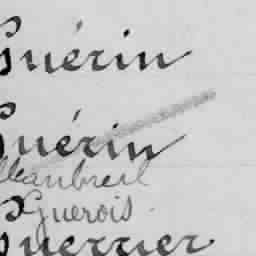 Guérin
Guérin
Maubreil
Guerois
Guerrier